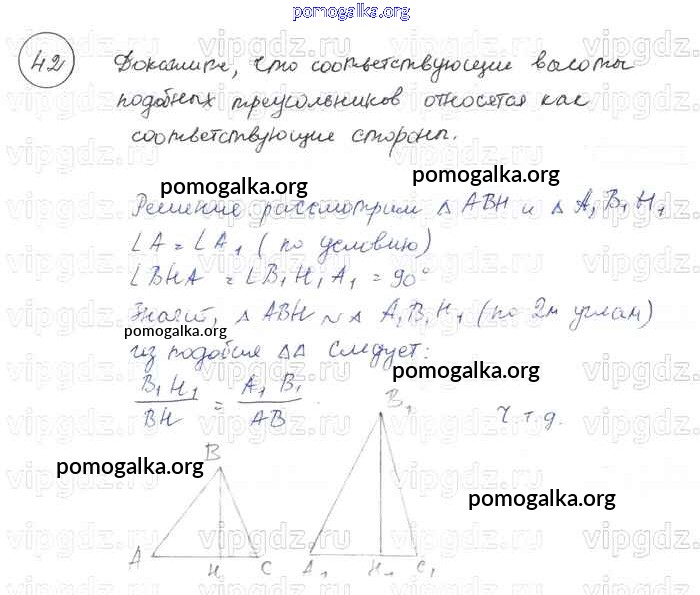 pomogalka.org
42 Докажите, что соответствующие высоты
подобных треугольников относятся как
соответствующие стороны.
pomogalka.org
pomogalka.org
Решение: рассмотрим △ ABH и △ A₁B₁H₁
∠A = ∠A₁ (по условию)
∠BHA = ∠B₁H₁A₁ = 90°
Значит, △ ABH ~ △ A₁B₁H₁ (по 2м углам)
pomogalka.org
из подобия △△ следует:
pomogalka.org
B₁H₁ / BH = A₁B₁ / AB
Ч.т.д.
B B₁
pomogalka.org
pomogalka.org
A H C A₁ H₁ C₁
vipgdz.ru